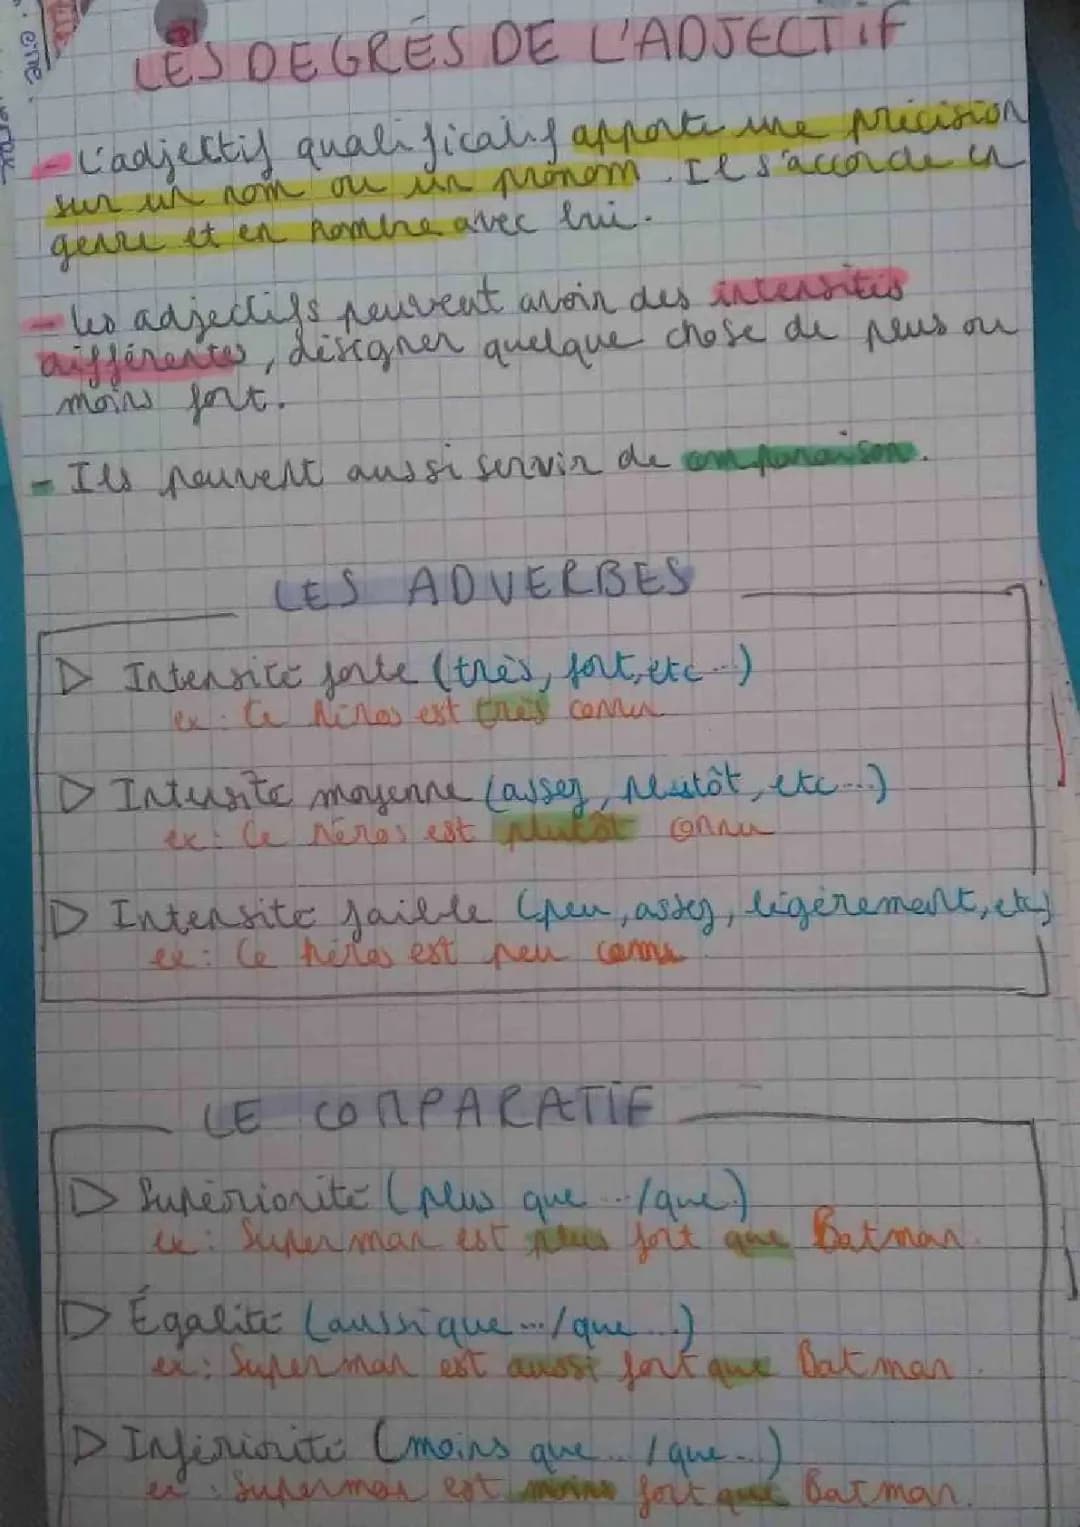 LES DEGRÉS DE L'ADJECTIF
- L'adjectif qualificatif apporte une précision
sur un nom ou un pronom. Il s'accorde en
genre et en nombre avec lui.
- les adjectifs peuvent avoir des intensités
différentes, désigner quelque chose de plus ou
moins fort.
- Ils peuvent aussi servir de comparaison.
LES ADVERBES
▷ Intensité forte (très, fort, etc...)
ex: Ce héros est très connu
▷ Intensité moyenne (assez, plutôt, etc...)
ex: Ce héros est plutôt connu
▷ Intensité faible (peu, assez, légèrement, etc)
ex: Ce héros est peu connu
LE COMPARATIF
▷ Supériorité (plus que .../que.)
ex: Superman est plus fort que Batman.
▷ Égalité (aussi que .../que ...)
ex: Superman est aussi fort que Batman.
▷ Infériorité (moins que .../que...)
ex: Superman est moins fort que Batman.